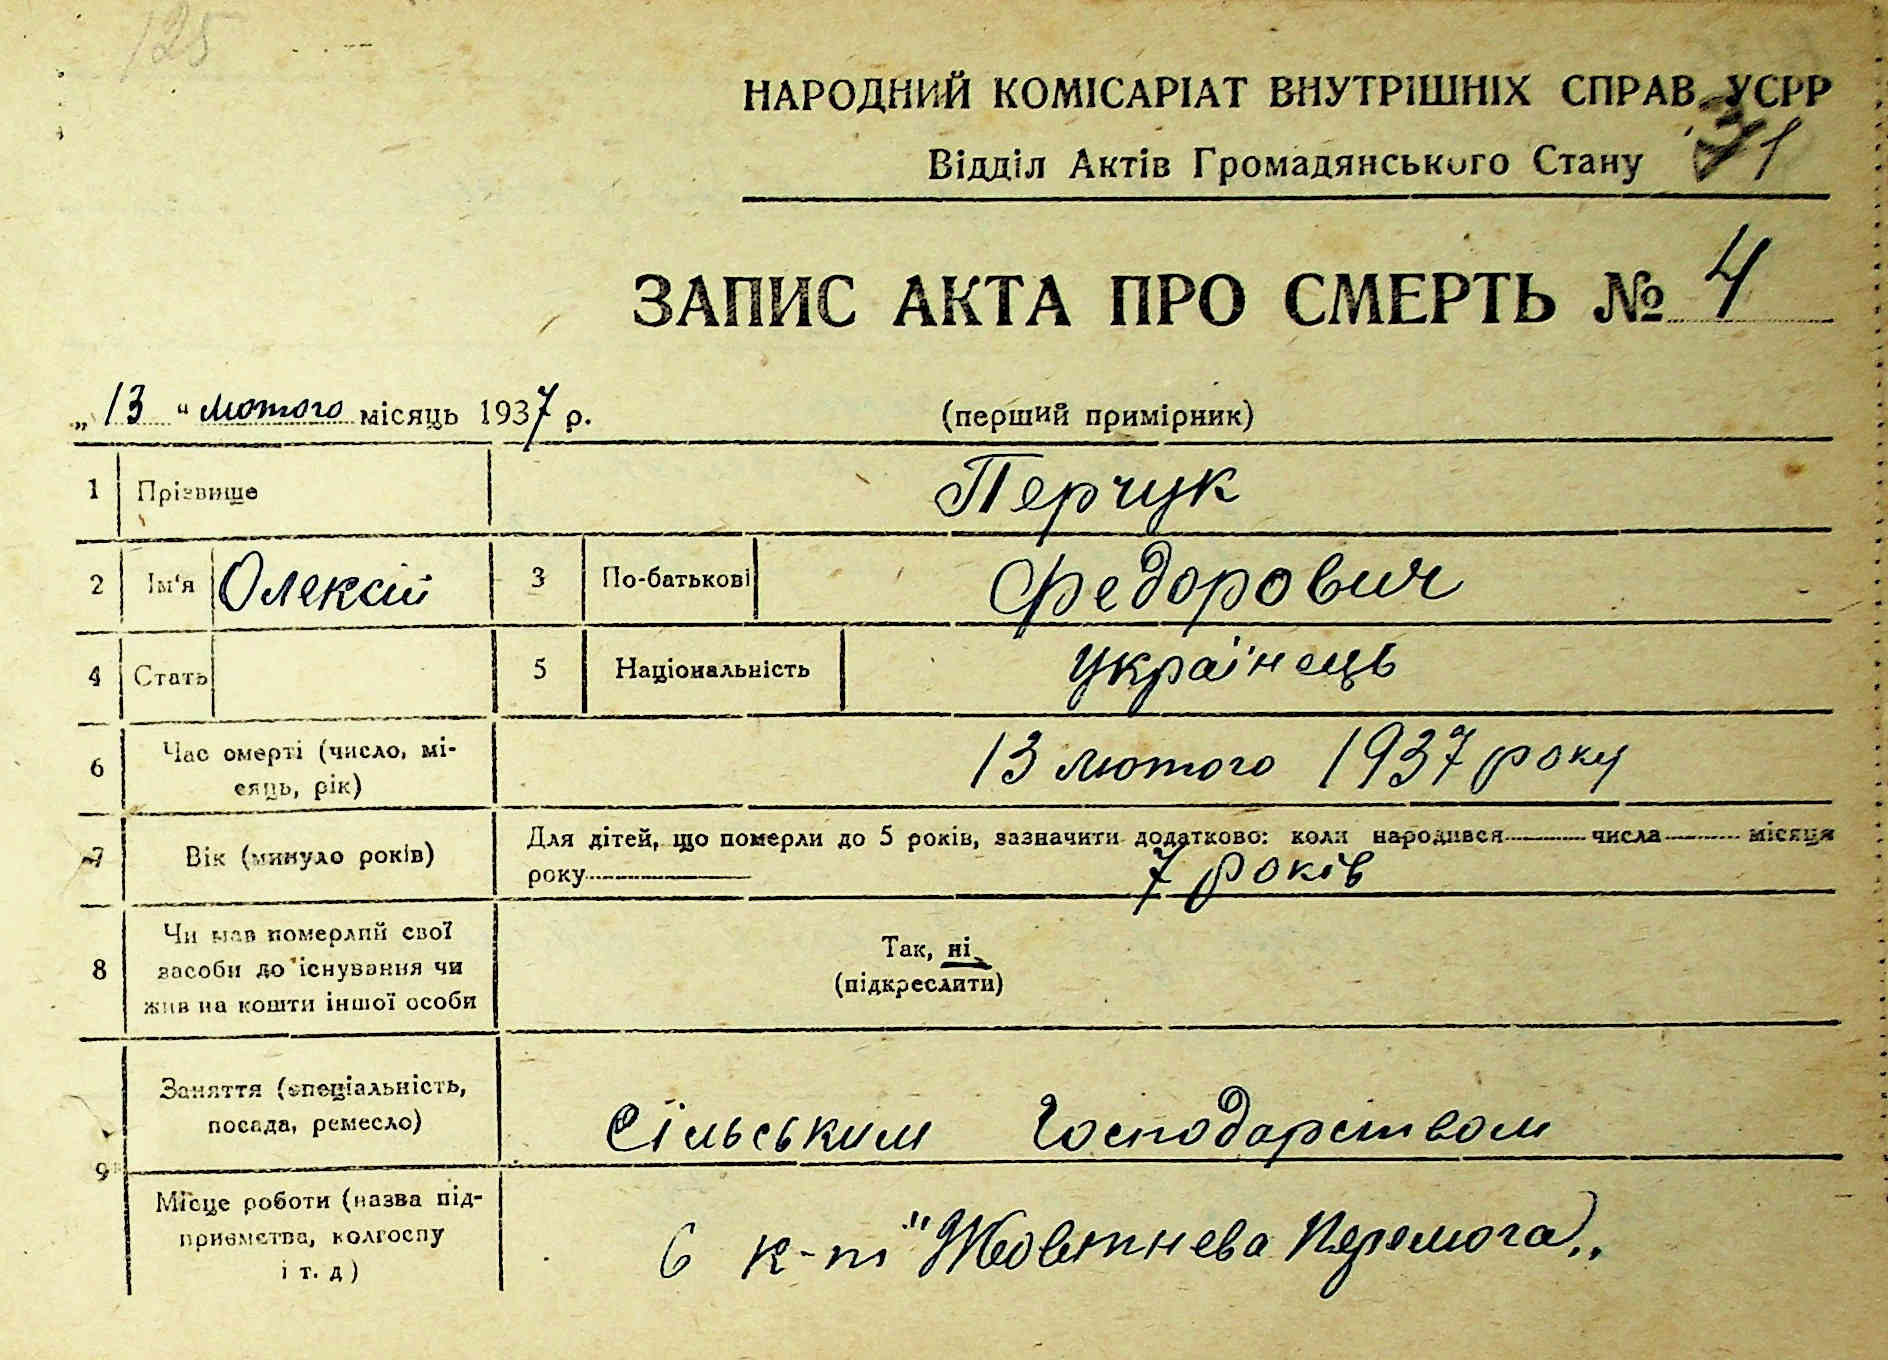 125
НАРОДНИЙ КОМІСАРІАТ ВНУТРІШНІХ СПРАВ УСРР
Відділ Актів Громадянського Стану 31
ЗАПИС АКТА ПРО СМЕРТЬ № 4
„13“ лютого місяць 1937 р. (перший примірник)
1 Прізвище Перчук
2 Ім'я Олексій 3 По-батькові Федорович
4 Стать 5 Національність Українець
6 Час смерті (число, мі-
сяць, рік) 13 лютого 1937 року
7 Вік (минуло років) Для дітей, що померли до 5 років, зазначити додатково: коли народився числа місяця
року 7 років
8 Чи мав померлий свої
засоби до існування чи
жив на кошти іншої особи
Так, ні
(підкреслити)
9 Заняття (спеціальність,
посада, ремесло) Сільським Господарством
Місце роботи (назва під-
приємства, колгоспу
і т. д) В к-т "Жовтнева Перемога„